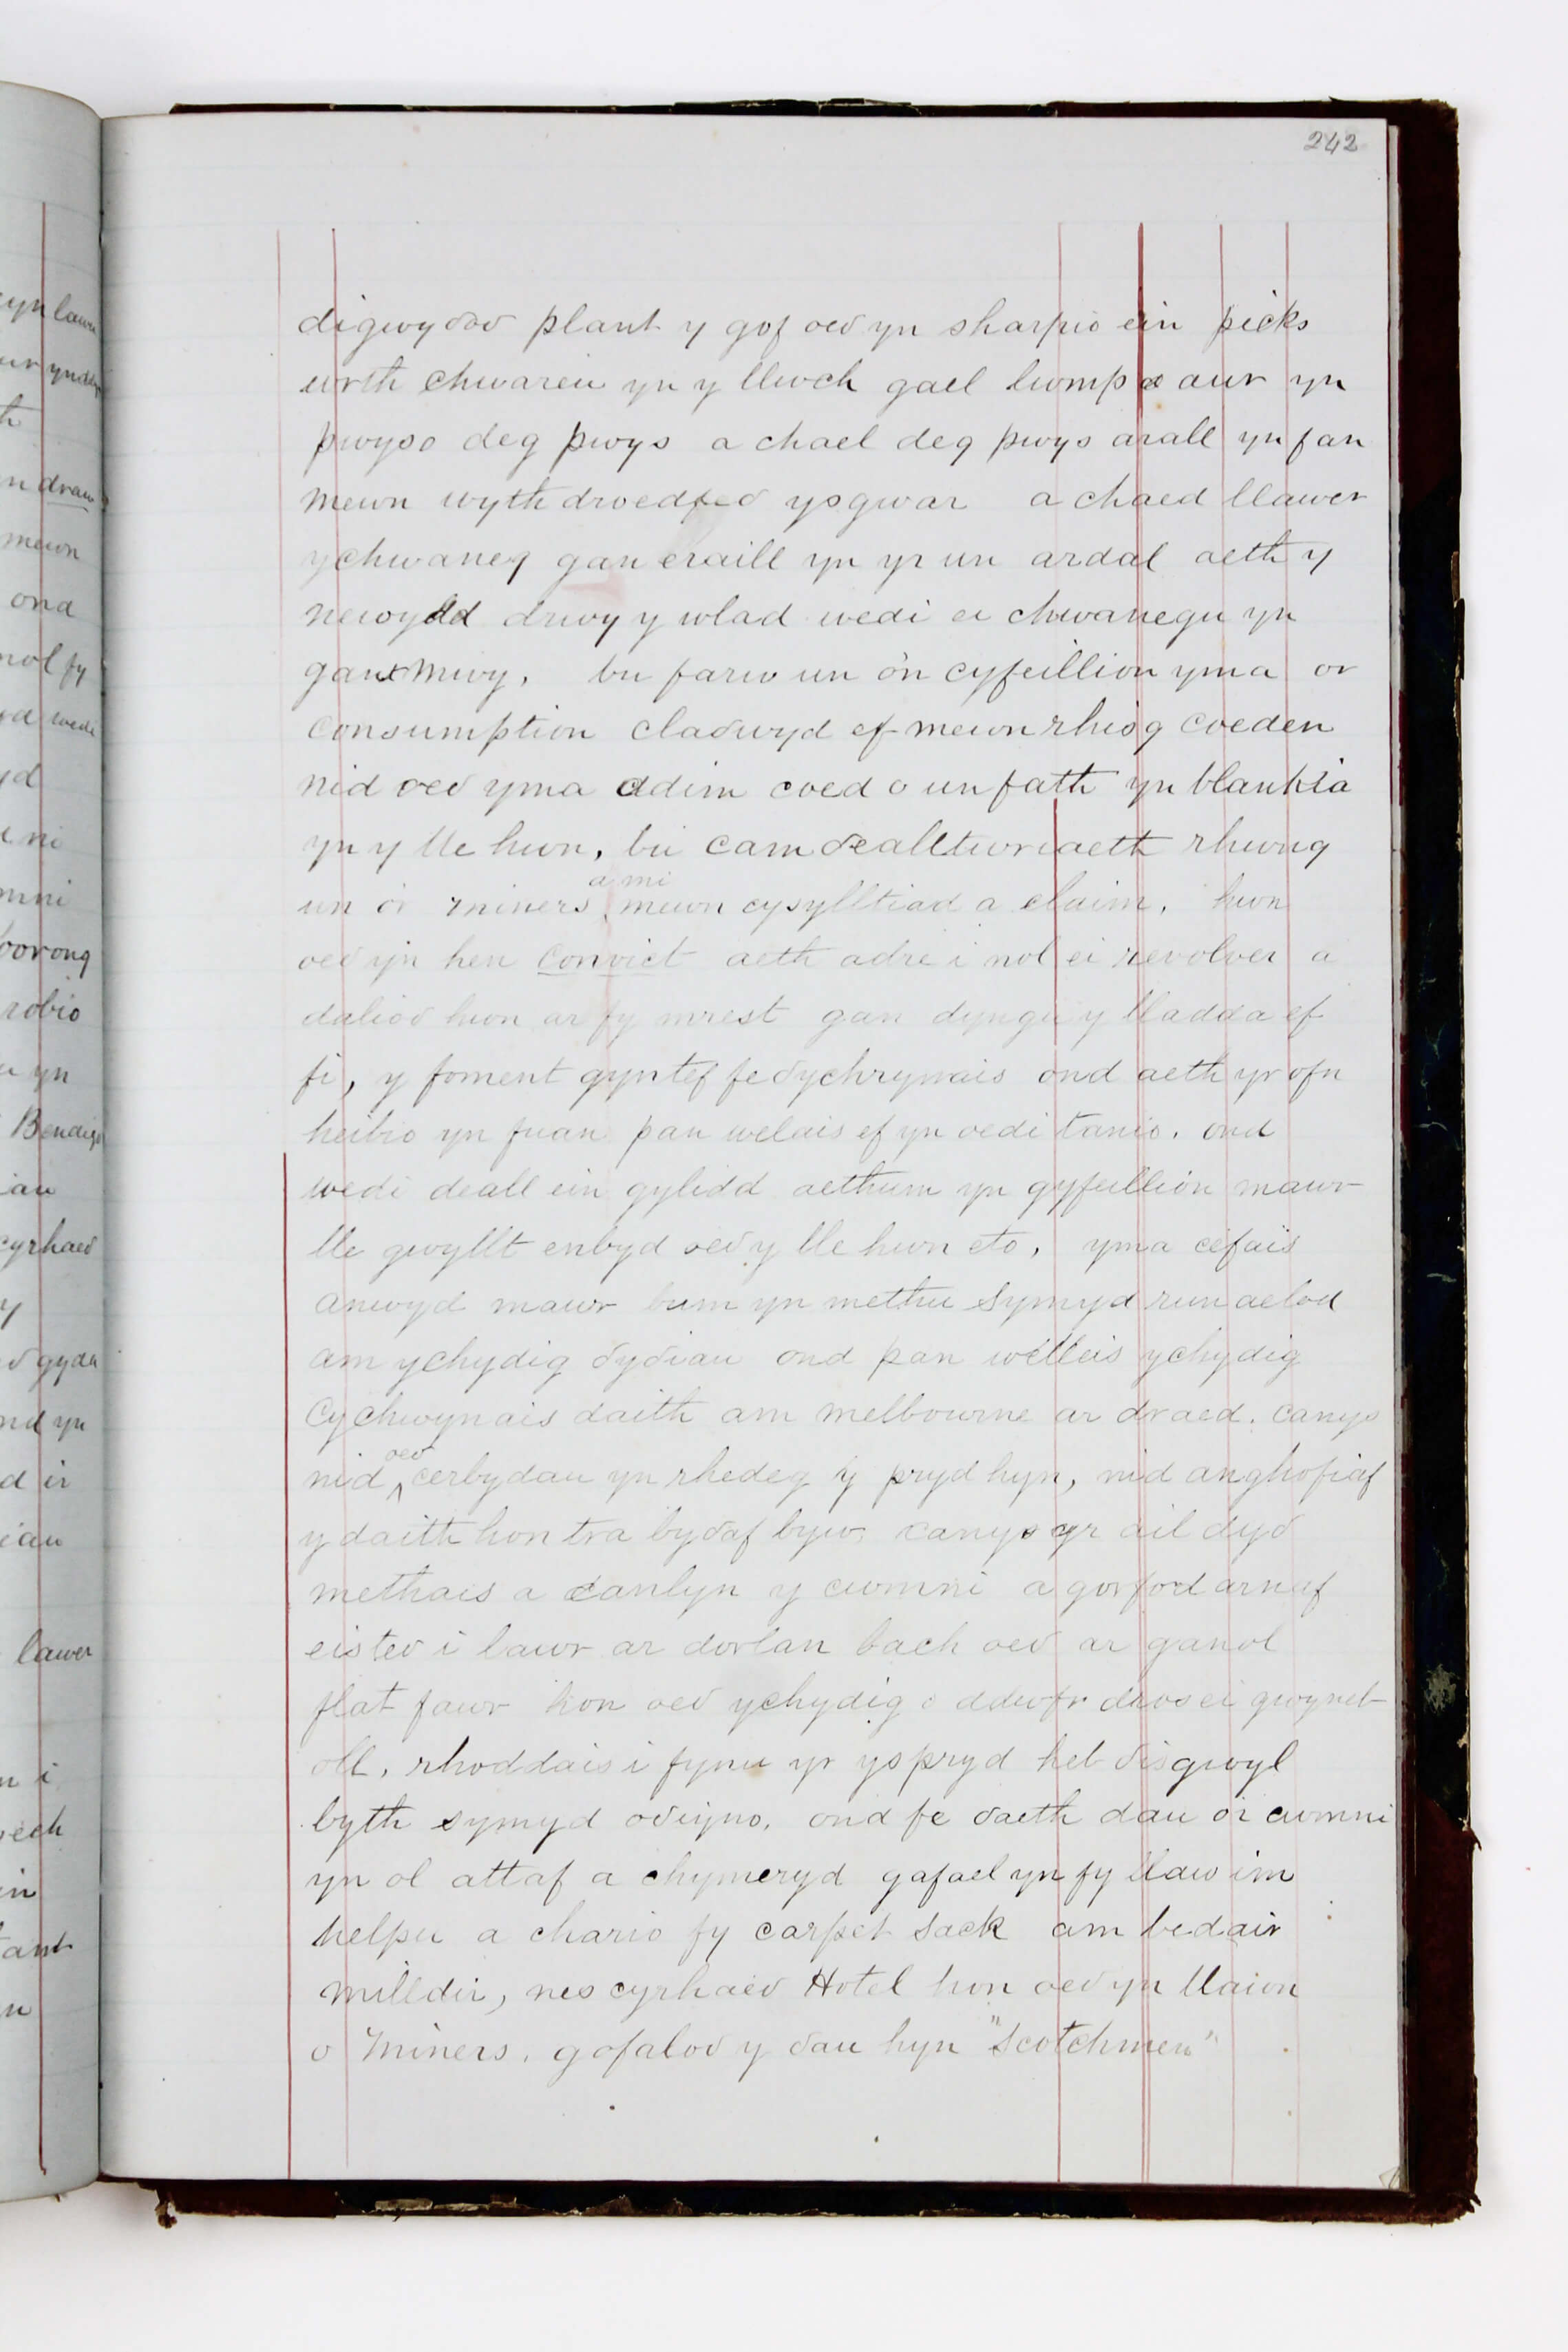 242
digwyδoδ plant y gof oeδ yn sharpio ein picks
wrth chwareu yn y llwch gael lwmp o aur yn
pwyso deg pwys a chael deg pwys arall yn fan
mewn wyth droedfeδ ysgwar a chaed llawer
ychwaneg gan eraill yn yr un ardal aeth y
newydd drwy y wlad wedi ei chwanegu yn
gan mwy, bu farw un o'n cyfeillion yma or
consumption claδwyd ef mewn rhisg coeden
nid oeδ yma ddim coed o un fath yn blankia
yn y lle hwn, bu camδealltwriaeth rhwng
un o'i miners a mi mewn cysylltiad a claim, hwn
oeδ yn hen convict aeth adre i nol ei revolver a
dalioδ hwn ar fy mrest gan dyngu y lladda ef
fi, y foment gyntef fe δychrynais ond aeth yr ofn
heibio yn fuan pan welais ef yn oedi tanio. ond
wedi deall ein gylidd aethum yn gyfeillion mawr
lle gwyllt enbyd oeδ y lle hwn eto, yma cefais
anwyd mawr bum yn methu symyd run aelod
am ychydig δyδiau ond pan welleis ychydig
Cychwynais daith am melbourne ar draed. canys
nid oeδ cerbydau yn rhedeg y pryd hyn, nid anghofiaf
y daith hon tra byδaf byw. canys yr ail dyδ
methais a canlyn y cwmni a gorfod arnaf
eisteδ i lawr ar dorlan bach oeδ ar ganol
flat fawr hon oeδ ychydig o ddwfr dros ei gwyneb
oll, rhoddais i fynu yr yspryd heb δisgwyl
byth symyd oδiyno. ond fe δaeth dau o'i cwmni
yn ol attaf a chymeryd gafael yn fy llaw im
helpu a chario fy carpet sack am bedair
milldir, nes cyrhaeδ Hotel hon oeδ yn llaion
o miners. gofaloδ y δau hyn "Scotchmen"